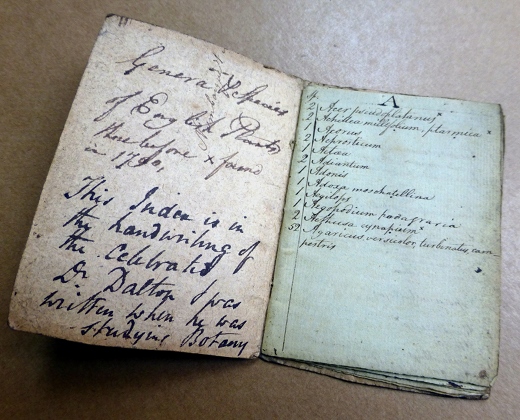 Genera & Species
of English Plants
those before x found
in 1790,
This Index is in
the handwriting of
the celebrated
Dr Dalton & was
written when he was
studying Botany
A
2 Acer pseudoplatanus x
2 Achillea millefolium, ptarmica x
1 Acorus
2 Acrosticum
1 Actæa
2 Adiantum
1 Adonis
1 Adoxa moschatillina
1 Ægilops
1 Ægopodium podagraria
2 Aethusa cynapium x
52 Agaricus versicolor, turbinatus, cam
pestris